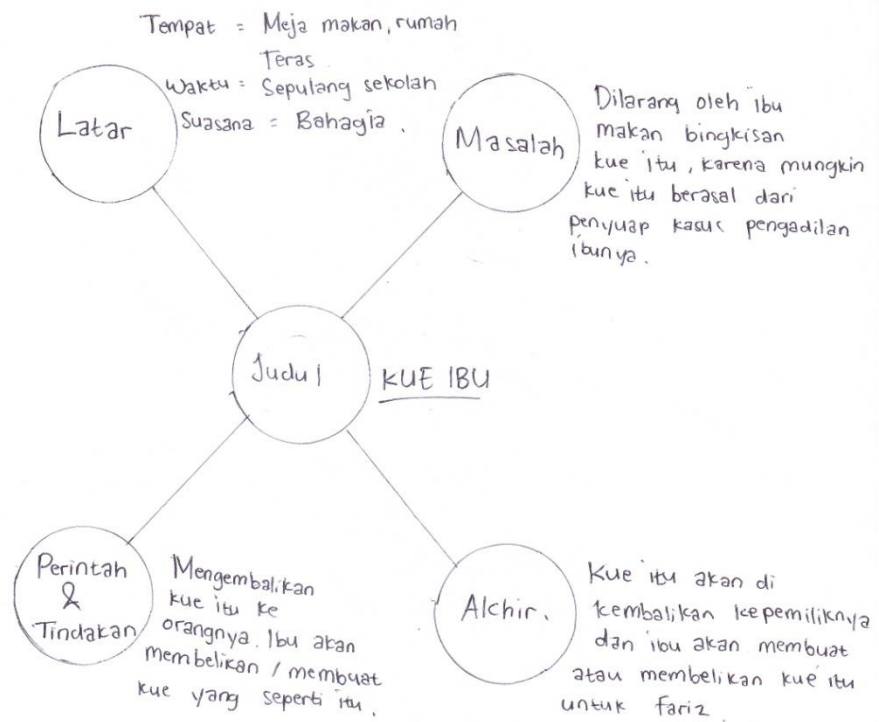 Tempat = Meja makan, rumah
Teras
Waktu = Sepulang sekolah
Suasana = Bahagia.
Latar
Masalah
Dilarang oleh ibu
makan bingkisan
kue itu, karena mungkin
kue itu berasal dari
penyuap kasus pengadilan
ibunya.
Judul
KUE IBU
Perintah
&
Tindakan
Mengembalikan
kue itu ke
orangnya. Ibu akan
membelikan / membuat
kue yang seperti itu.
Akhir.
Kue itu akan di
kembalikan kepemiliknya
dan ibu akan membuat
atau membelikan kue itu
untuk fariz